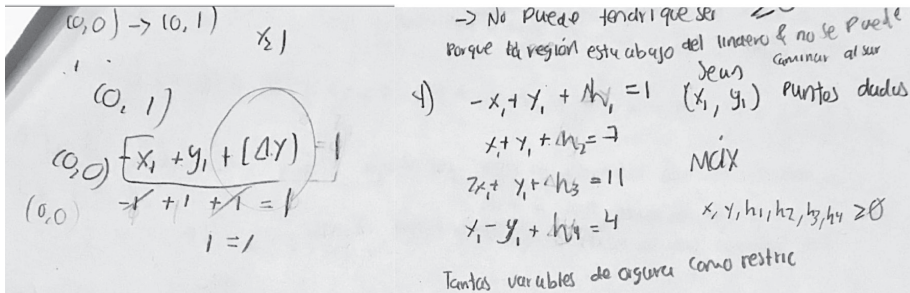 (0,0) → (0,1)
(0,1)
(0,0) -x₁ + y₁ + (Δy) = 1
(0,0) -1 + 1 + 1 = 1
1 = 1
→ No puede tendri que ser
Porque región esta abajo del lindero & no se puede
caminar al sur
Sean (x₁, y₁) puntos dados
-x₁ + y₁ + h₁ = 1
x₁ + y₁ + h₂ = 7
2x₁ + y₁ + h₃ = 11
x₁ - y₁ + h₄ = 4
Máx
x, y, h₁, h₂, h₃, h₄ ≥ 0
Tantas variables de como restric